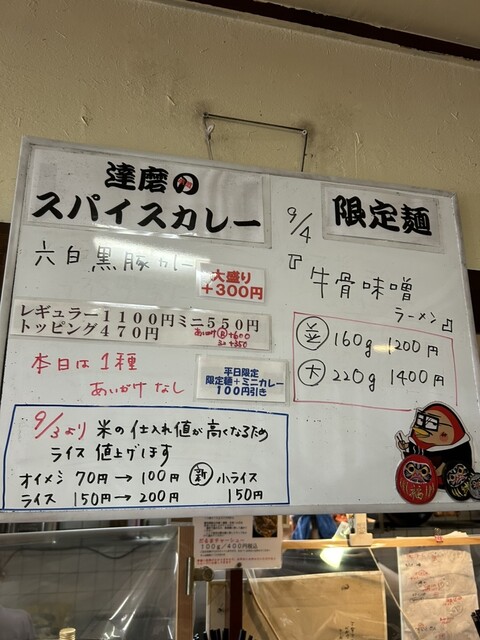 達磨の
スパイスカレー
六白黒豚カレー
大盛り
+300円
レギュラー1100円ミニ550円
トッピング470円
本日は1種
あいがけ なし
平日限定
限定麺+ミニカレー
100円引き
9/3より 米の仕入れ値が高くなるため
ライス 値上げします
オイメシ 70円→100円
ライス 150円→200円
新 小ライス
150円
9/4
限定麺
『牛骨味噌
ラーメン』
並 160g 1200円
大 220g 1400円
福
100g/400円税込